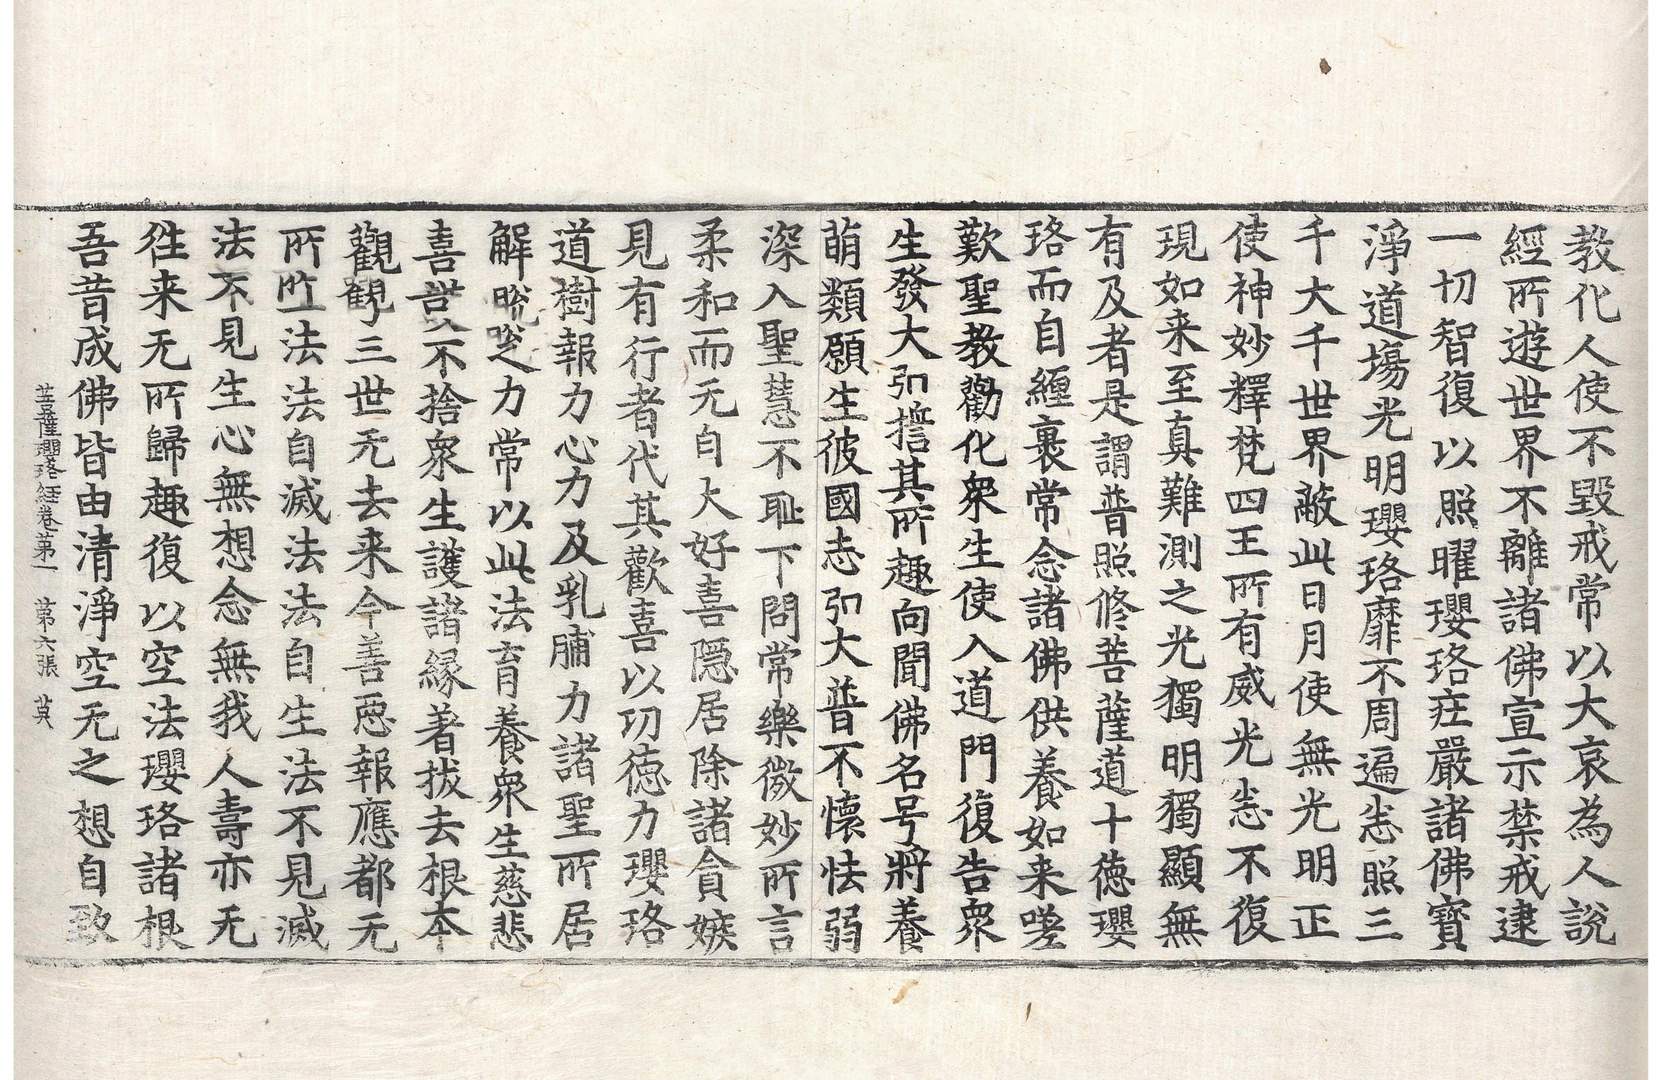 教化人使不毀戒常以大哀為人說
經所遊世界不離諸佛宣示禁戒逮
一切智復以照曜瓔珞莊嚴諸佛寶
淨道場光明瓔珞靡不周遍悉照三
千大千世界蔽此日月使無光明正
使神妙釋梵四王所有威光悉不復
現如来至真難測之光獨明獨顯無
有及者是謂普照修菩薩道十德瓔
珞而自纏裹常念諸佛供養如来嗟
歎聖教勸化衆生使入道門復告衆
生發大弘擔其所趣向聞佛名号將養
萌類願生彼國志弘大普不懷怯弱
深入聖慧不耻下問常樂微妙所言
柔和而无自大好喜隱居除諸貪嫉
見有行者代其歡喜以功德力瓔珞
道樹報力心力及乳哺力諸聖所居
解脫慧力常以此法育養衆生慈悲
喜世不捨衆生護諸縁著拔去根本
觀觀了三世无去来今善惡報應都无
所所法法自滅法法自生法不見滅
法不見生心無想念無我人壽亦无
徃来无所歸趣復以空法瓔珞諸根
吾昔成佛皆由清淨空无之想自致
菩薩瓔珞經卷第一 第六張 莫